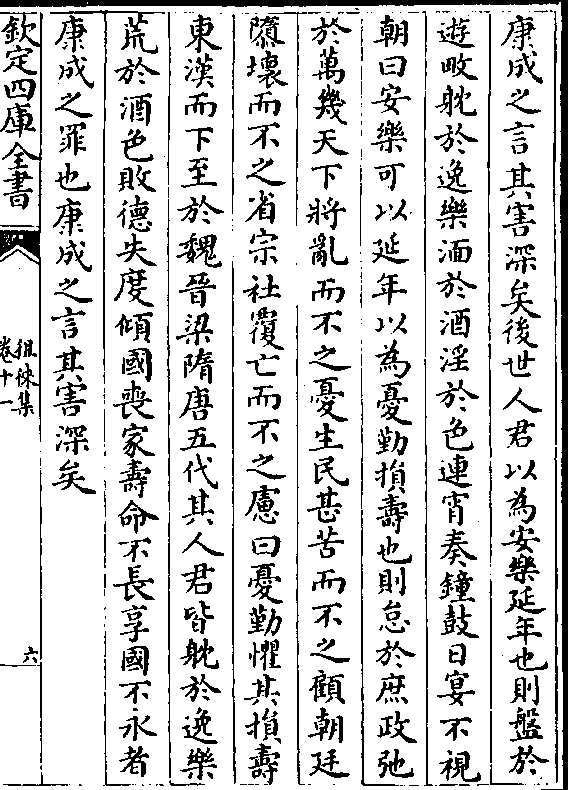 康成之言其害深矣後世人君以為安樂延年也則盤於
遊畋躭於逸樂湎於酒淫於色連宵奏鐘鼓日宴不視
朝曰安樂可以延年以為憂勤損壽也則怠於庶政弛
於萬幾天下將亂而不之憂生民甚苦而不之顧朝廷
隳壞而不之省宗社覆亡而不之慮曰憂勤懼其損壽
東漢而下至於魏晉梁隋唐五代其人君皆躭於逸樂
荒於酒色敗德失度傾國喪家壽命不長享國不永者
康成之罪也康成之言其害深矣
欽定四庫全書
徂徠集
卷十一
六